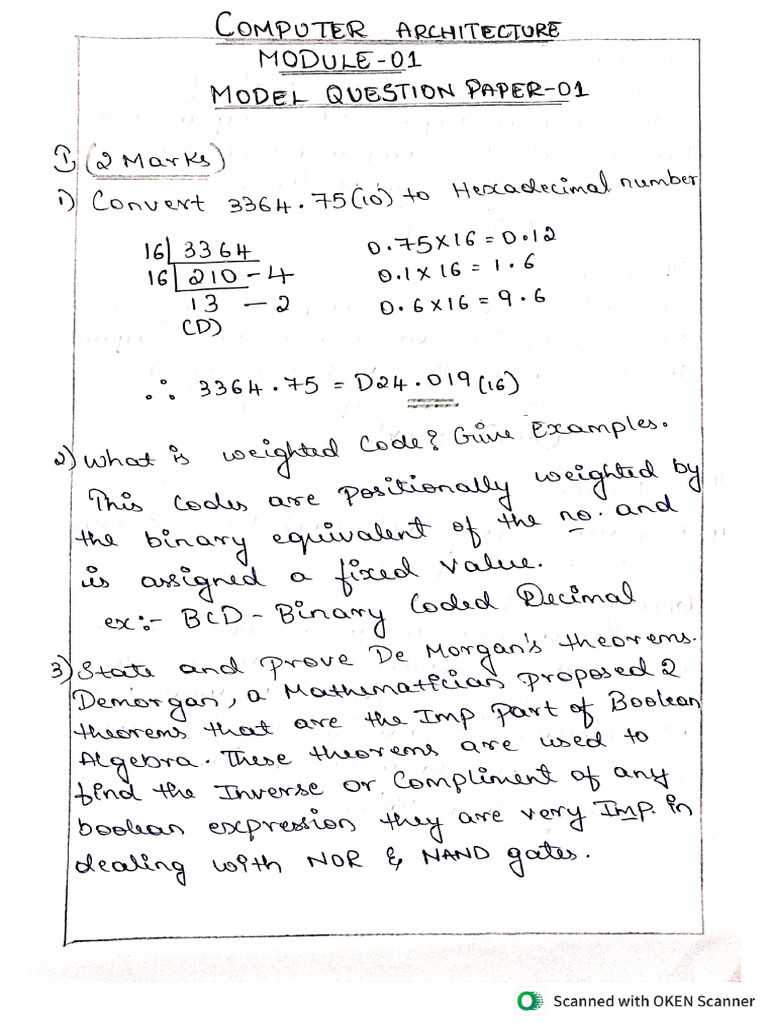 COMPUTER ARCHITECTURE
MODULE-01
MODEL QUESTION PAPER-01
I, (2 Marks)
1) Convert 3364.75(10) to Hexadecimal number
16 3364
16 210 - 4
13 - 2
(D)
0.75X16 = 0.12
0.1X16 = 1.6
0.6X16 = 9.6
∴ 3364.75 = D24.019(16)
2) What is weighted code? Give Examples.
This codes are positionally weighted by
the binary equivalent of the no. and
is assigned a fixed value.
ex:- BCD - Binary Coded Decimal
3) State and prove De Morgan's theorems.
Demorgan, a Mathematician proposed 2
theorems that are the Imp part of Boolean
Algebra. These theorems are used to
find the Inverse or Compliment of any
boolean expression they are very Imp. in
dealing with NOR & NAND gates.
Scanned with OKEN Scanner